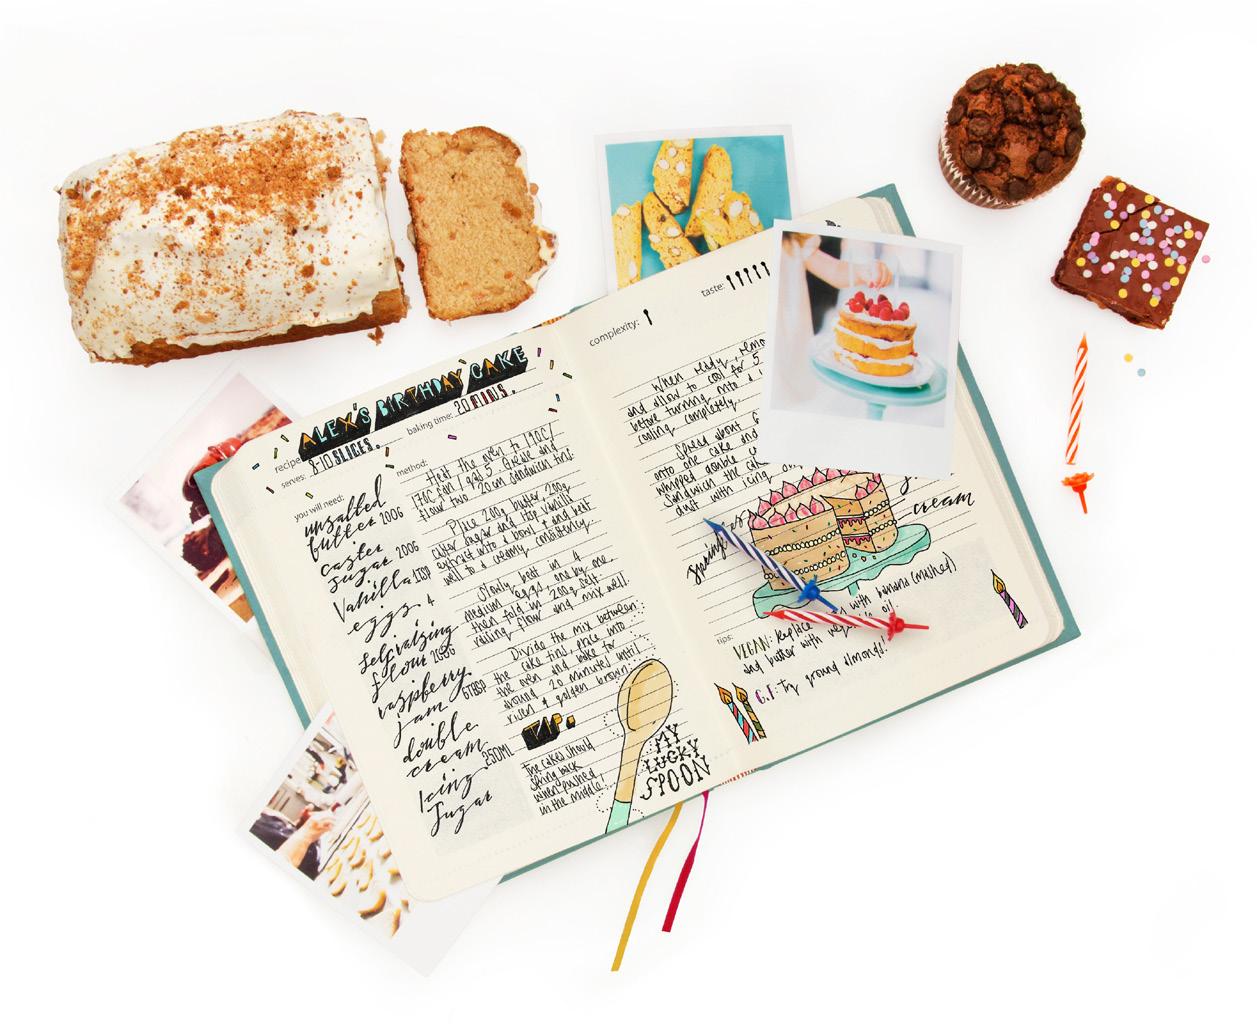 ALEX'S BIRTHDAY CAKE
recipe
8-10 SLICES.
serves:
baking time: 20 MINS.
you will need:
unsalted
butter 200G
caster
sugar 200G
Vanilla 1TSP
eggs 4
self raising
flour 200G
raspberry
jam 6TBSP
double
cream 250ML
Icing
Sugar
method:
Heat the oven to 190C/
170C fan/gas 5. Grease and
flour two 20cm sandwich tins.
Place 200g butter, 200g
caster sugar and the vanilla
extract into a bowl + and beat
well to a creamy consistency.
Slowly beat in 4
medium eggs, one by one,
then fold in 200g self
raising flour and mix well.
Divide the mix between
the cake tins, place into
the oven and bake for
around 20 minutes until
risen & golden brown.
TIP.
The cakes should
spring back
when pushed
in the middle!
MY
LUCKY
SPOON
complexity:
taste:
When ready, remo
and allow to cool for 5
before turning onto a
cooling completely.
Spread about 6
onto one cake and
whipped double
Sandwich the cake
dust with icing
cream
tips:
VEGAN: Replace with banana (mashed)
and butter with vegetable oil
G.F: Try ground almonds!